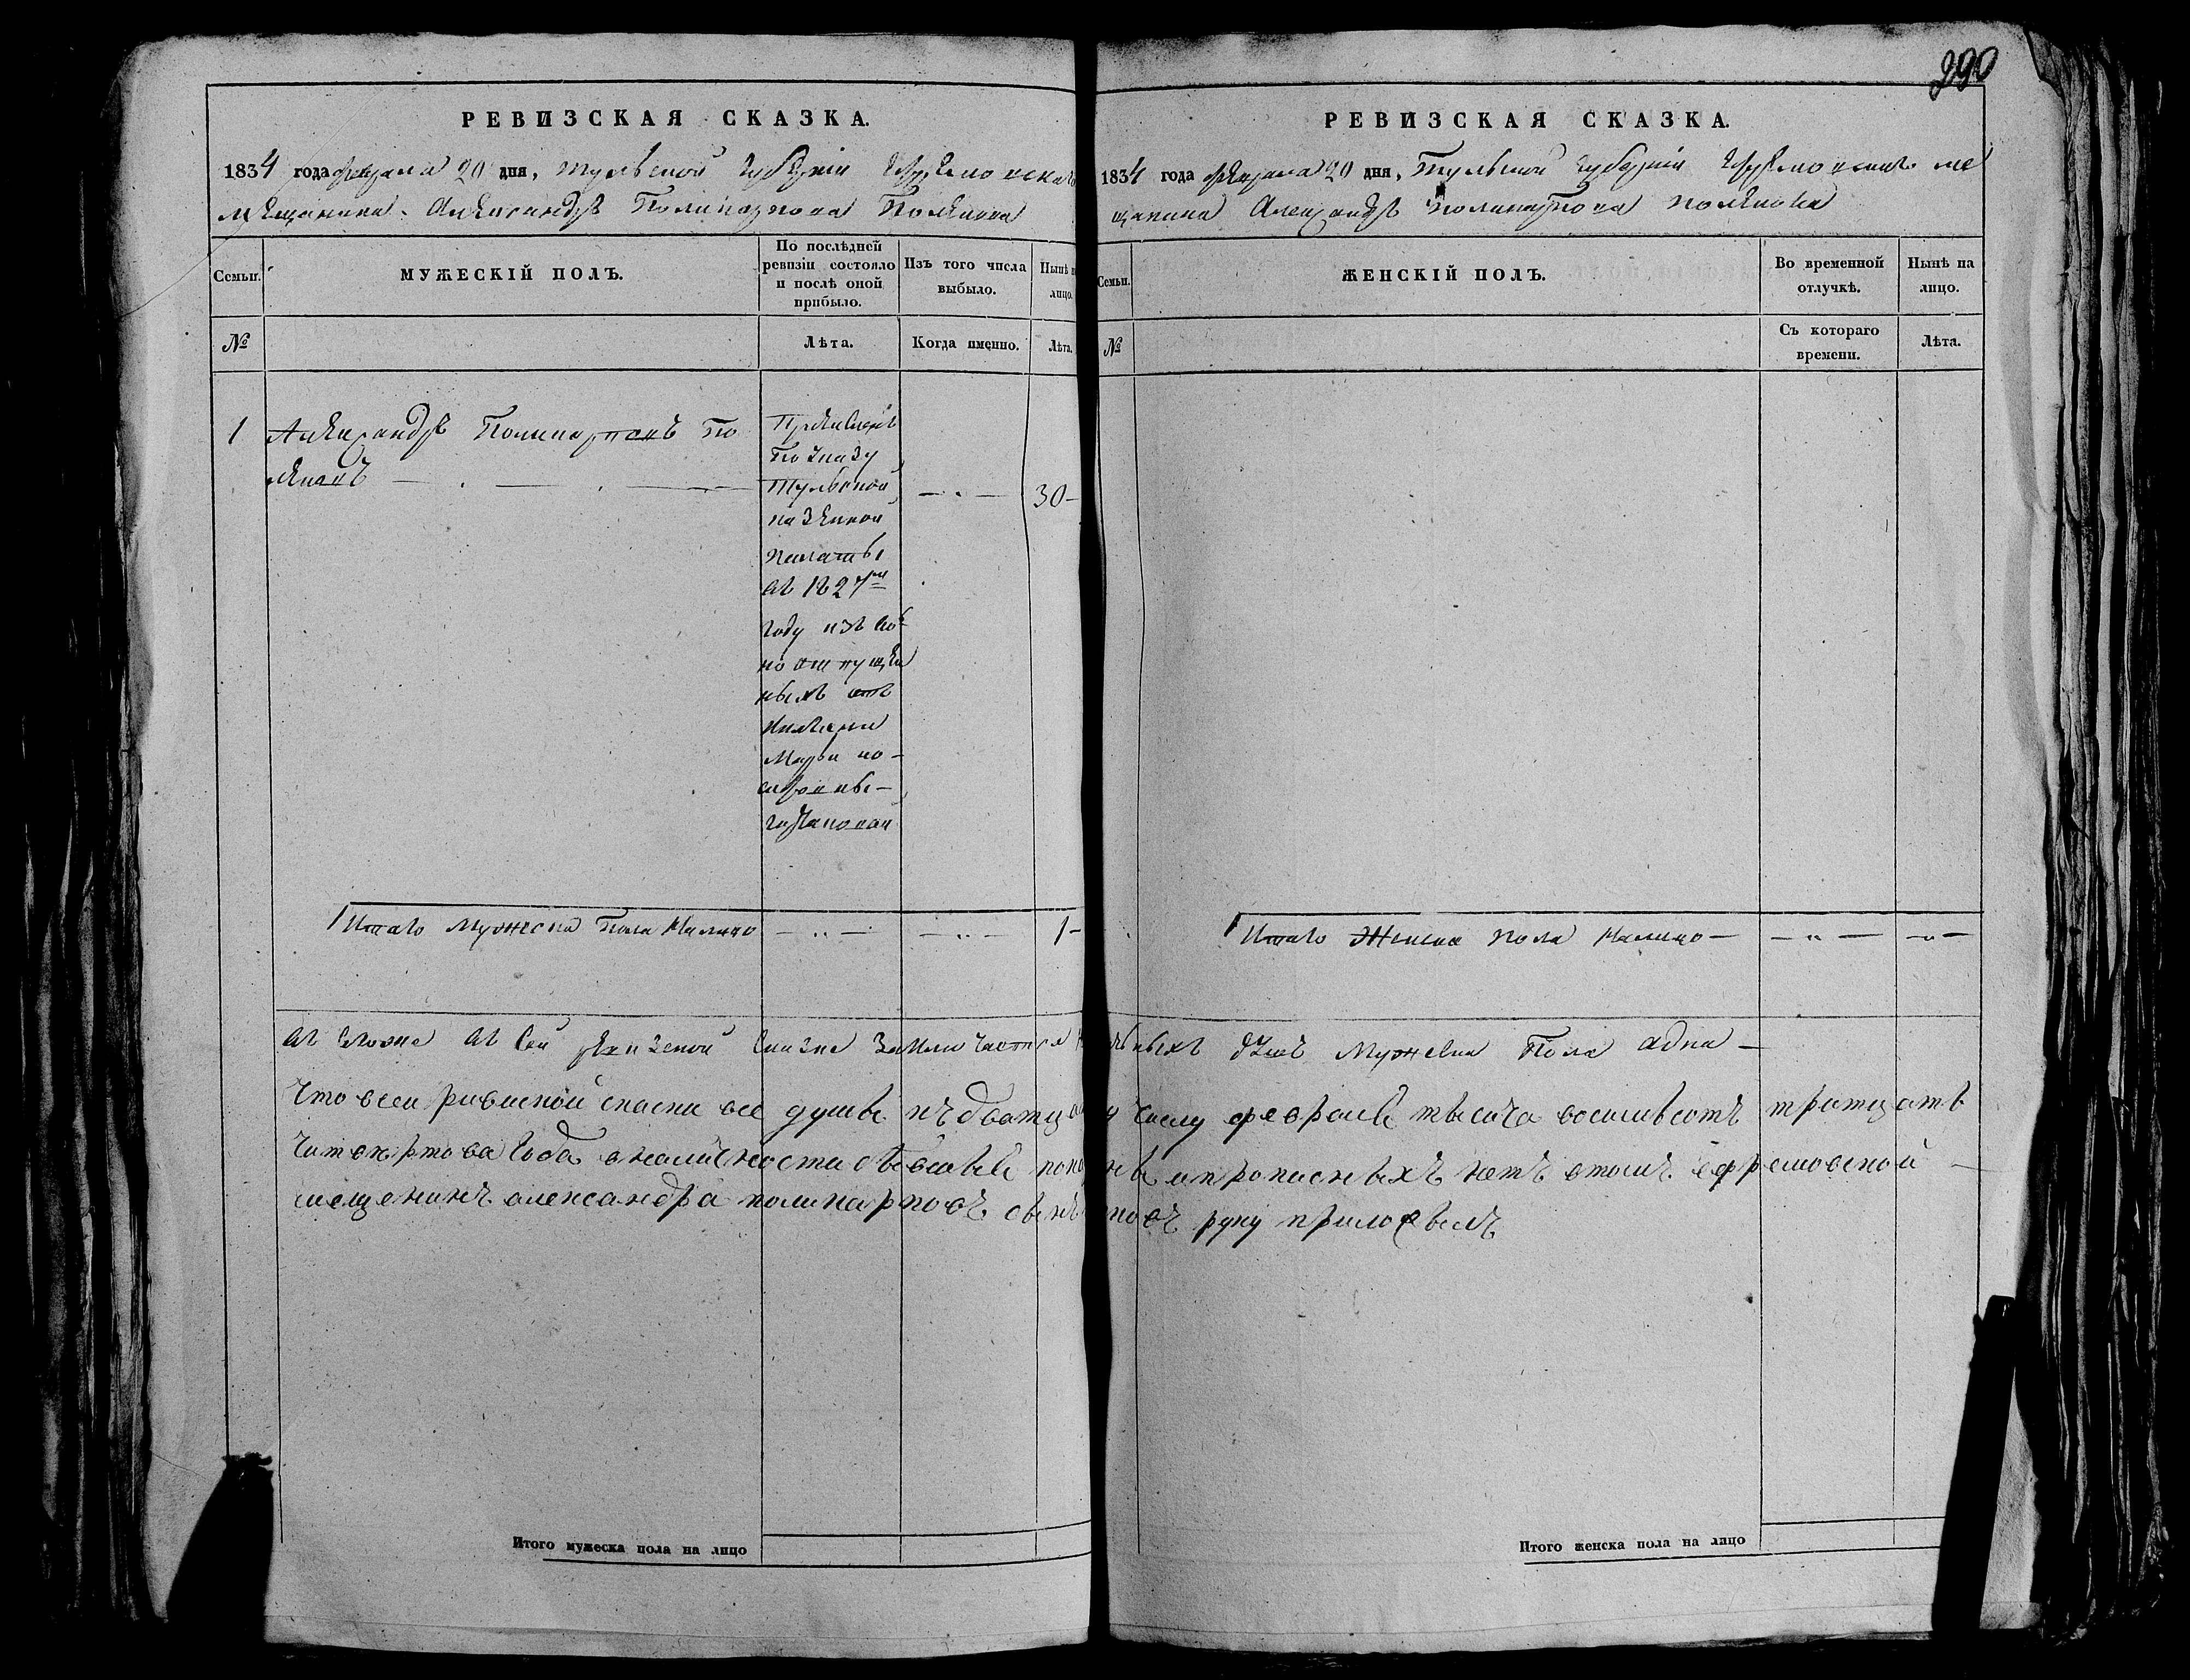 290
РЕВИЗСКАЯ СКАЗКА.
1834 года февраля 20 дня, Тульской губерніи Ефремовскаго
мещанина Александра Поликарпова Полякова
Семьи.
МУЖЕСКІЙ ПОЛЪ.
По послѣдней ревизіи состояло и послѣ оной прибыло.
Изъ того числа выбыло.
Нынѣ на лицо.
№
Лѣта.
Когда именно.
Лѣта.
1
Александръ Поликарповъ По
ляковъ
Причисленъ
по указу
Тульской
казенной
палаты
въ 1827м
году изъ воль
но отпущен
ныхъ отъ
Марьи
30
Итаго мужеска пола налицо
1
РЕВИЗСКАЯ СКАЗКА.
1834 года февраля 20 дня, Тульской губерніи Ефремовскаго ме
щанина Александра Поликарпова Полякова
Семьи.
ЖЕНСКІЙ ПОЛЪ.
Во временной отлучкѣ.
Нынѣ на лицо.
№
Съ котораго времени.
Лѣта.
Итаго Женска пола налицо
въ сей сказке душъ мужеска пола адна
что всеи ривиской скаски все душы къ двацатому числу февраля тысича восимьсотъ тритцать
читвертова года вналичности бывшые показаны ипрописныхъ нетъ втомъ ефремовской
мещенинъ александра поликарповъ сынъ руку приложылъ
Итого мужеска пола на лицо
Итого женска пола на лицо